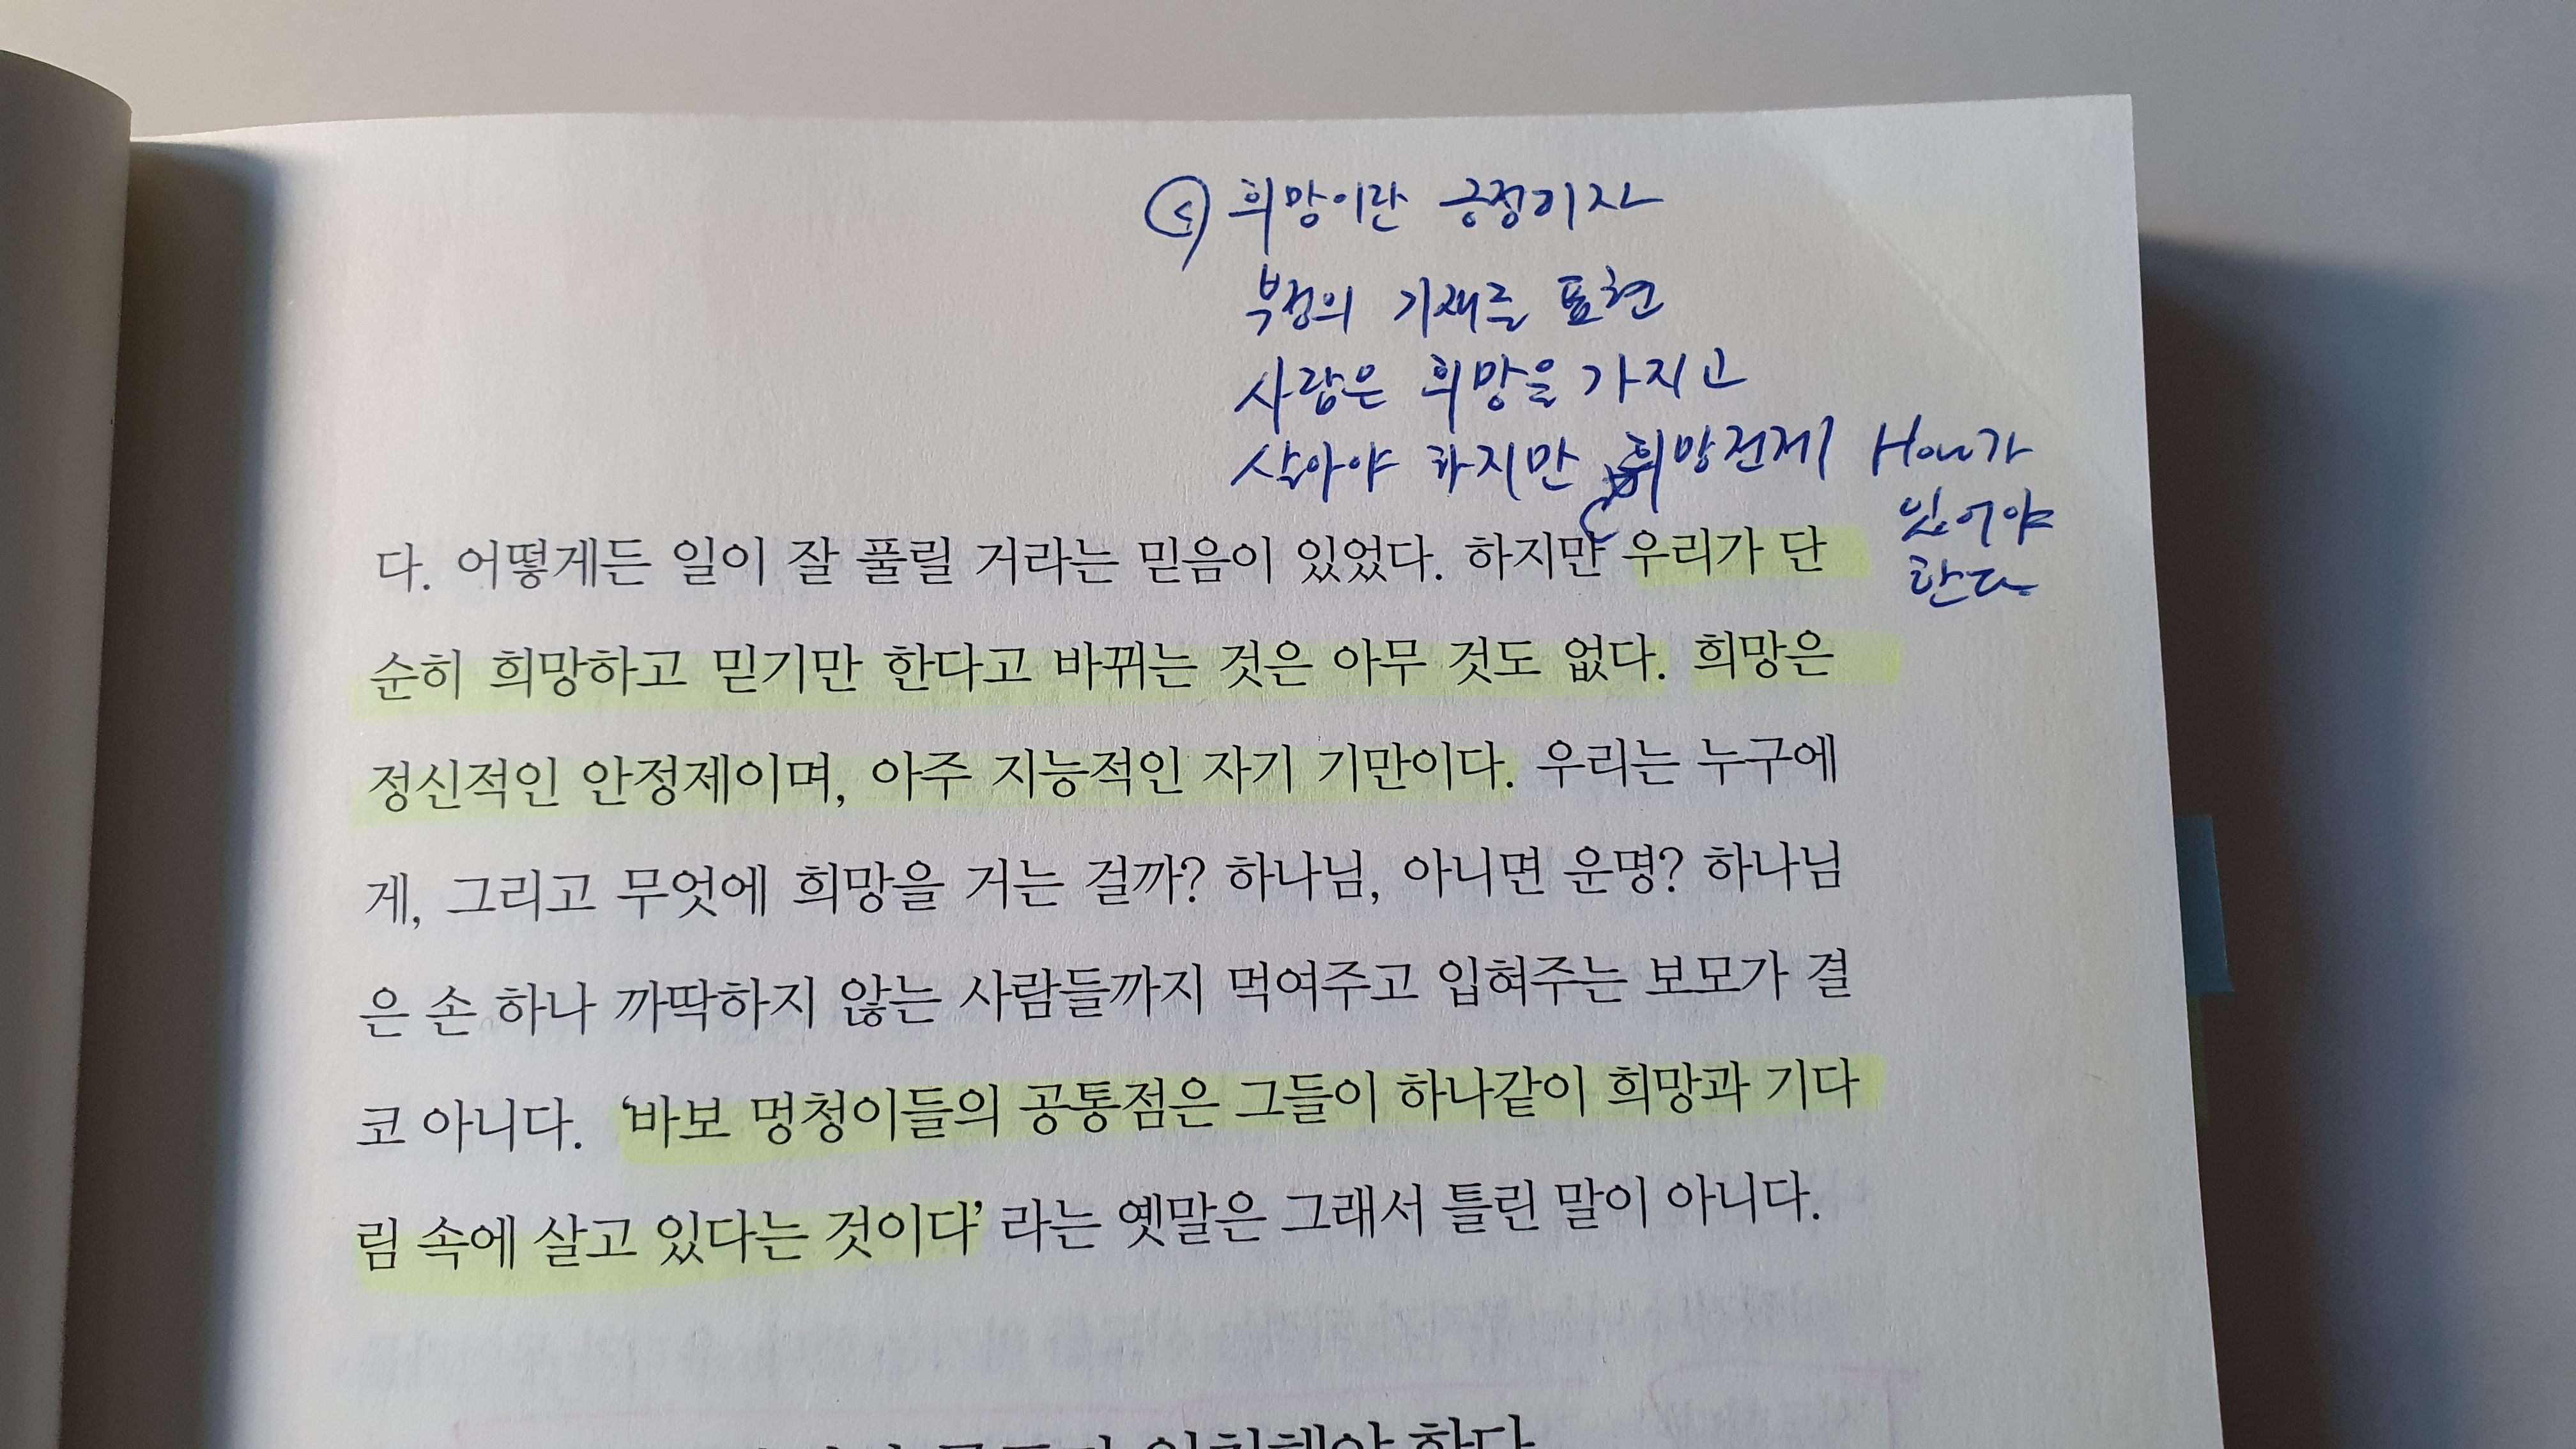 희망이란 긍정기자
부정의 기재를 표현
사람은 희망을 가지고
살아야 하지만 희망전제 How가
있어야
한다
다. 어떻게든 일이 잘 풀릴 거라는 믿음이 있었다. 하지만 우리가 단
순히 희망하고 믿기만 한다고 바뀌는 것은 아무 것도 없다. 희망은
정신적인 안정제이며, 아주 지능적인 자기 기만이다. 우리는 누구에
게, 그리고 무엇에 희망을 거는 걸까? 하나님, 아니면 운명? 하나님
은 손 하나 까딱하지 않는 사람들까지 먹여주고 입혀주는 보모가 결
코 아니다. ‘바보 멍청이들의 공통점은 그들이 하나같이 희망과 기다
림 속에 살고 있다는 것이다’ 라는 옛말은 그래서 틀린 말이 아니다.
한다